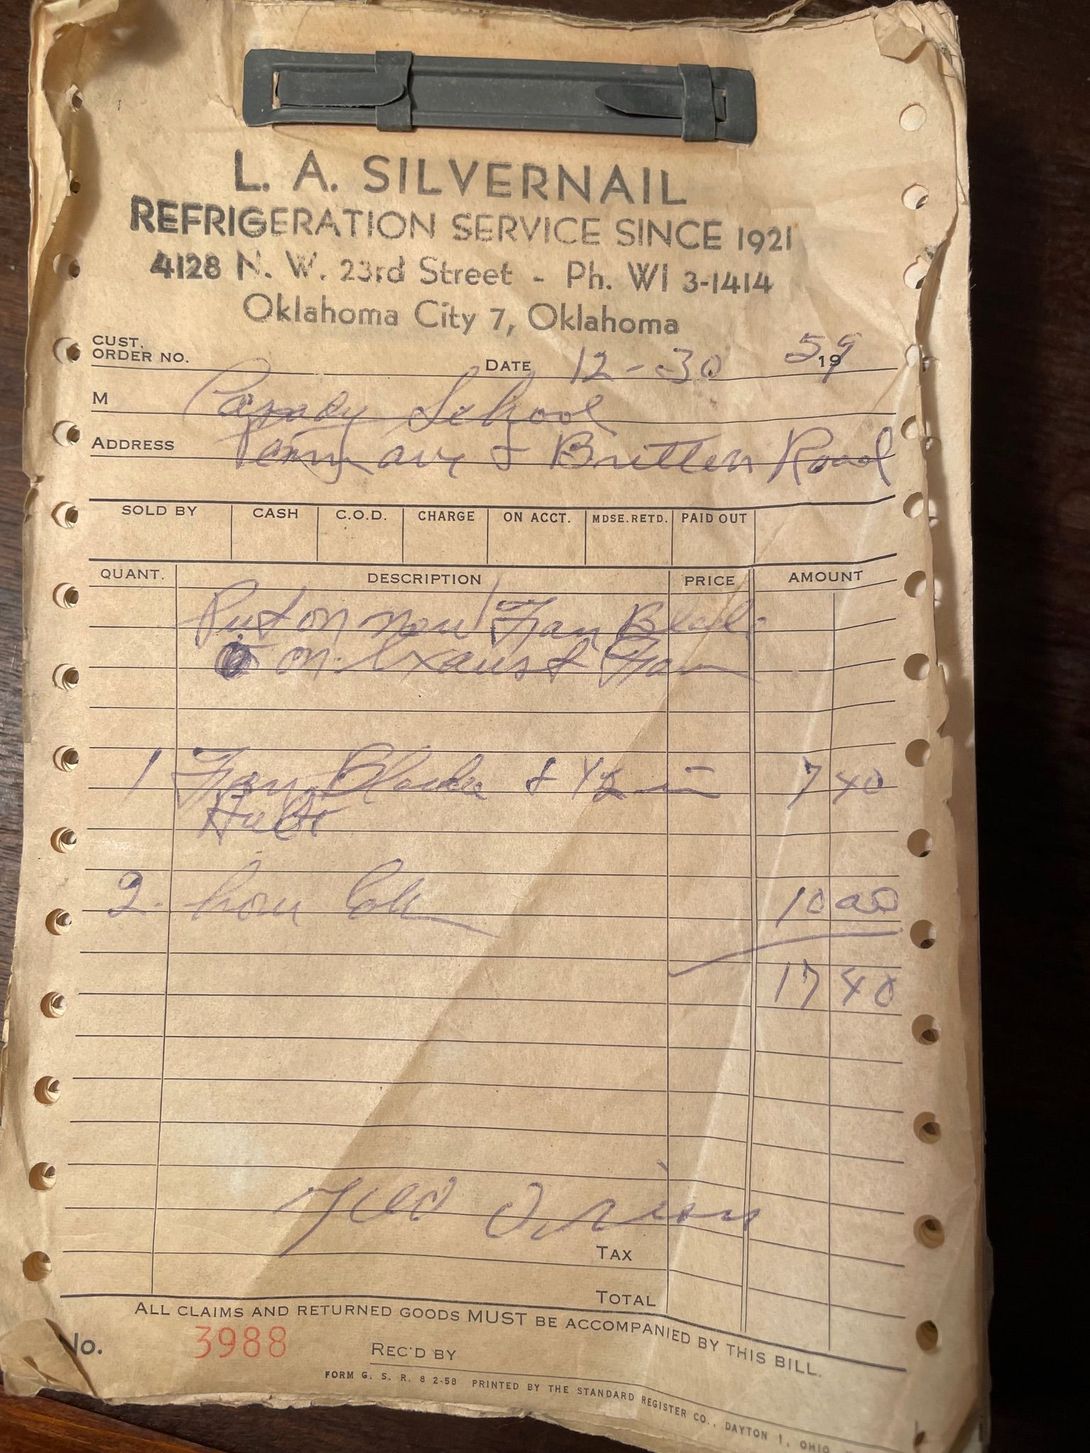 L. A. SILVERNAIL
REFRIGERATION SERVICE SINCE 1921
4128 N. W. 23rd Street - Ph. WI 3-1414
Oklahoma City 7, Oklahoma
CUST. ORDER NO.
DATE 12-30 19 59
M School
ADDRESS ave & Britten Road
SOLD BY CASH C.O.D. CHARGE ON ACCT. MDSE.RETD. PAID OUT
QUANT. DESCRIPTION PRICE AMOUNT
Put on new Fan Blade
on Exaust Fan
1 Fan Blade & 1/2 in 7 40
2 hour 10 00
17 40
TAX
TOTAL
ALL CLAIMS AND RETURNED GOODS MUST BE ACCOMPANIED BY THIS BILL.
No. 3988
REC'D BY
FORM G. S. R. 8 2-58 PRINTED BY THE STANDARD REGISTER CO., DAYTON 1, OHIO